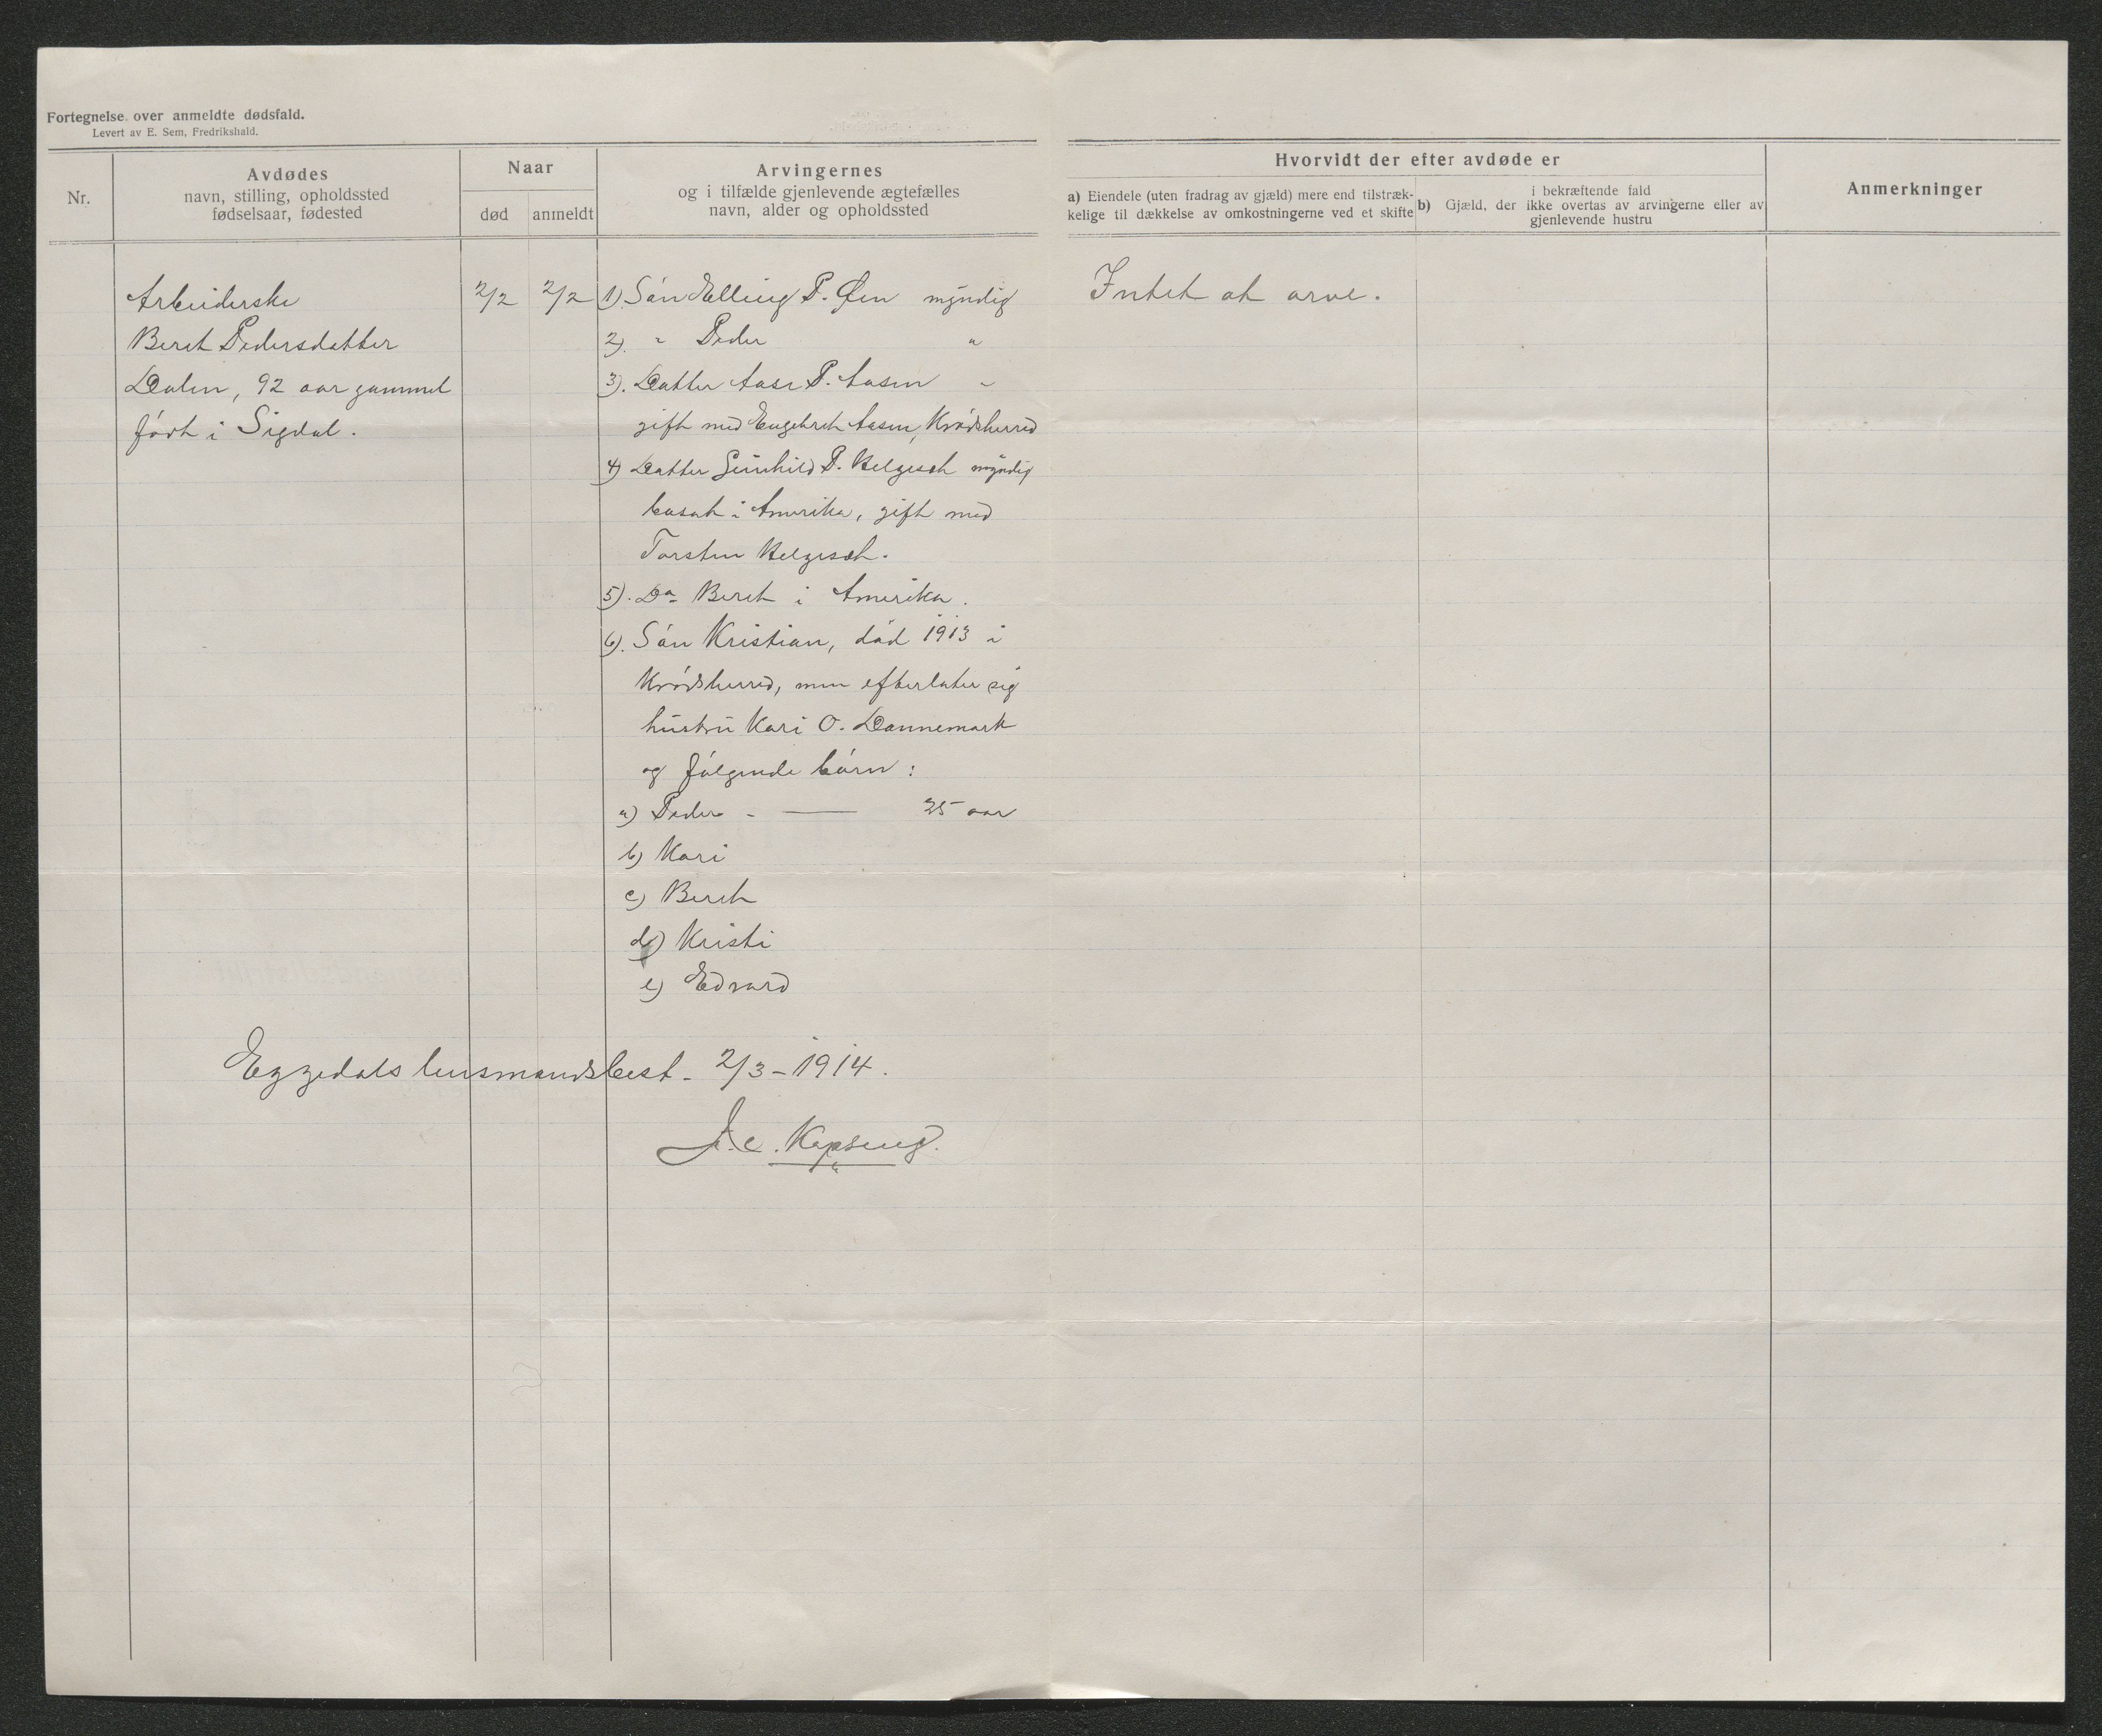 Fortegnelse over anmeldte dødsfald.
Levert av E. Sem, Fredrikshald.
Nr.
Avdødes
navn, stilling, opholdssted
fødselsaar, fødested
Naar
død
anmeldt
Arvingernes
og i tilfælde gjenlevende ægtefælles
navn, alder og opholdssted
Hvorvidt der efter avdøde er
a) Eiendele (uten fradrag av gjæld) mere end tilstræk-
kelige til dækkelse av omkostningerne ved et skifte
i bekræftende fald
b) Gjæld, der ikke overtas av arvingerne eller av
gjenlevende hustru
Anmerkninger
Arbeiderske
Beret Pedersdatter
Dalen, 92 aar gammel
født i Sigdal.
2/2
2/2
1) Søn Elling P. Øen myndig
2). " Peder "
3). Datter Aase P. Aasen "
gift med Engebret Aasen, Krødsherred
4) Datter Gunhild P. Helgeset myndig
bosat i Amerika, gift med
Torsten Helgeset.
5). Do Beret i Amerika.
6). Søn Kristian, død 1913 i
Krødsherred, men efterlater sig
hustru Kari O. Dannemark
og følgende børn:
a) Peder - — 25 aar
b) Kari
c) Beret
d) Kristi
e) Edvard
Intet at arve.
Eggedals lensmandsbest. 2/3 - 1914.